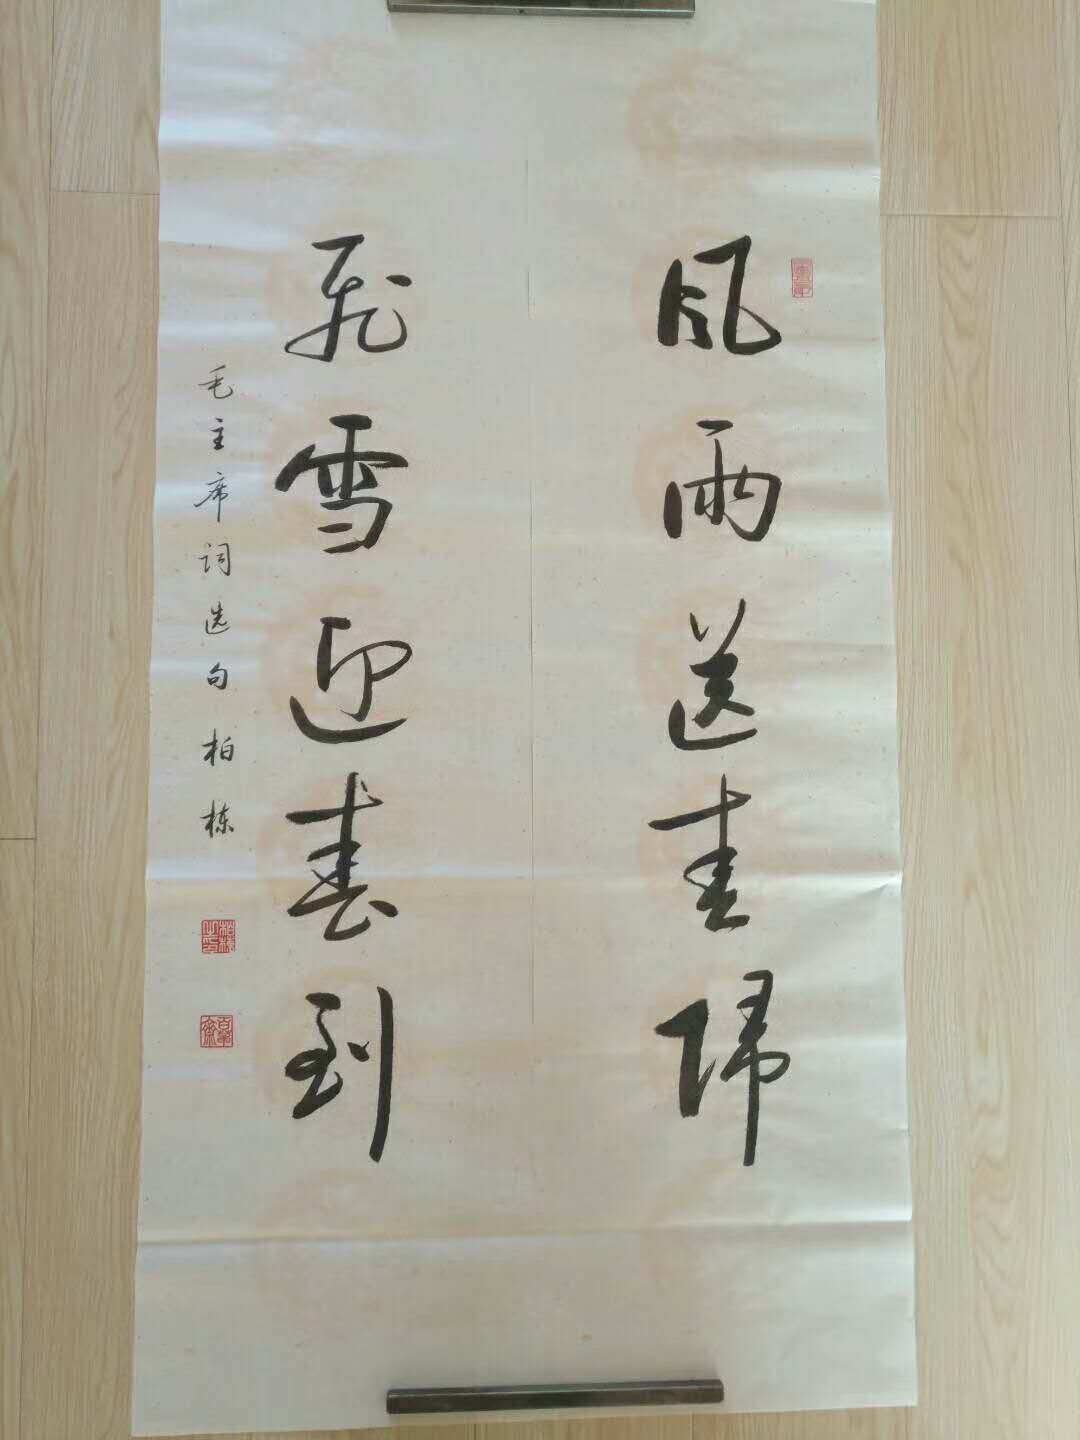 风雨送春归
飛雪迎春到
毛主席词选句 柏栋